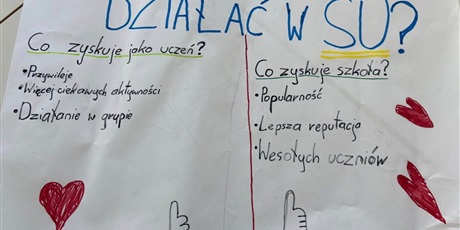 DZIAŁAĆ W SU?
Co zyskuje jako uczeń?
• Przywileje
• Więcej ciekawych aktywności
• Działanie w grupie
Co zyskuje szkoła?
• Popularność
• Lepsza reputacja
• Wesołych uczniów